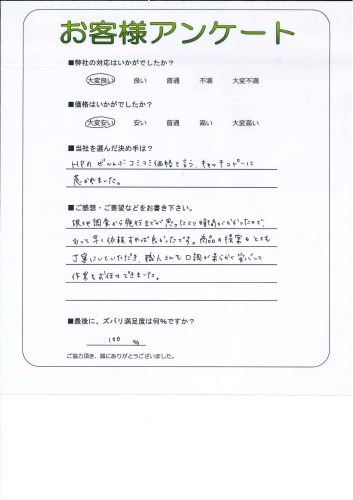 お客様アンケート
■弊社の対応はいかがでしたか？
大変良い 良い 普通 不満 大変不満
■価格はいかがでしたか？
大変安い 安い 普通 高い 大変高い
■当社を選んだ決め手は？
HPのぜんぶコミコミ価格と言う、キャッチコピーに
惹かれました。
■ご感想・ご要望などをお書き下さい。
現地調査から施行までが思ったより時間がかかったので、
もっと早く依頼すれば良かったです。商品の提案もとても
丁寧にしていただき、職人さんも口調が柔らかく安心して
作業をお任せできました。
■最後に、ズバリ満足度は何%ですか？
100 %
ご協力頂き、誠にありがとうございました。